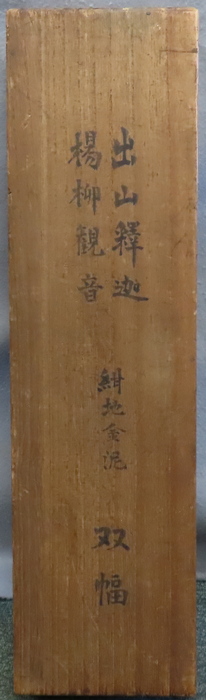 出山釋迦
楊柳観音
紺地金泥
双幅